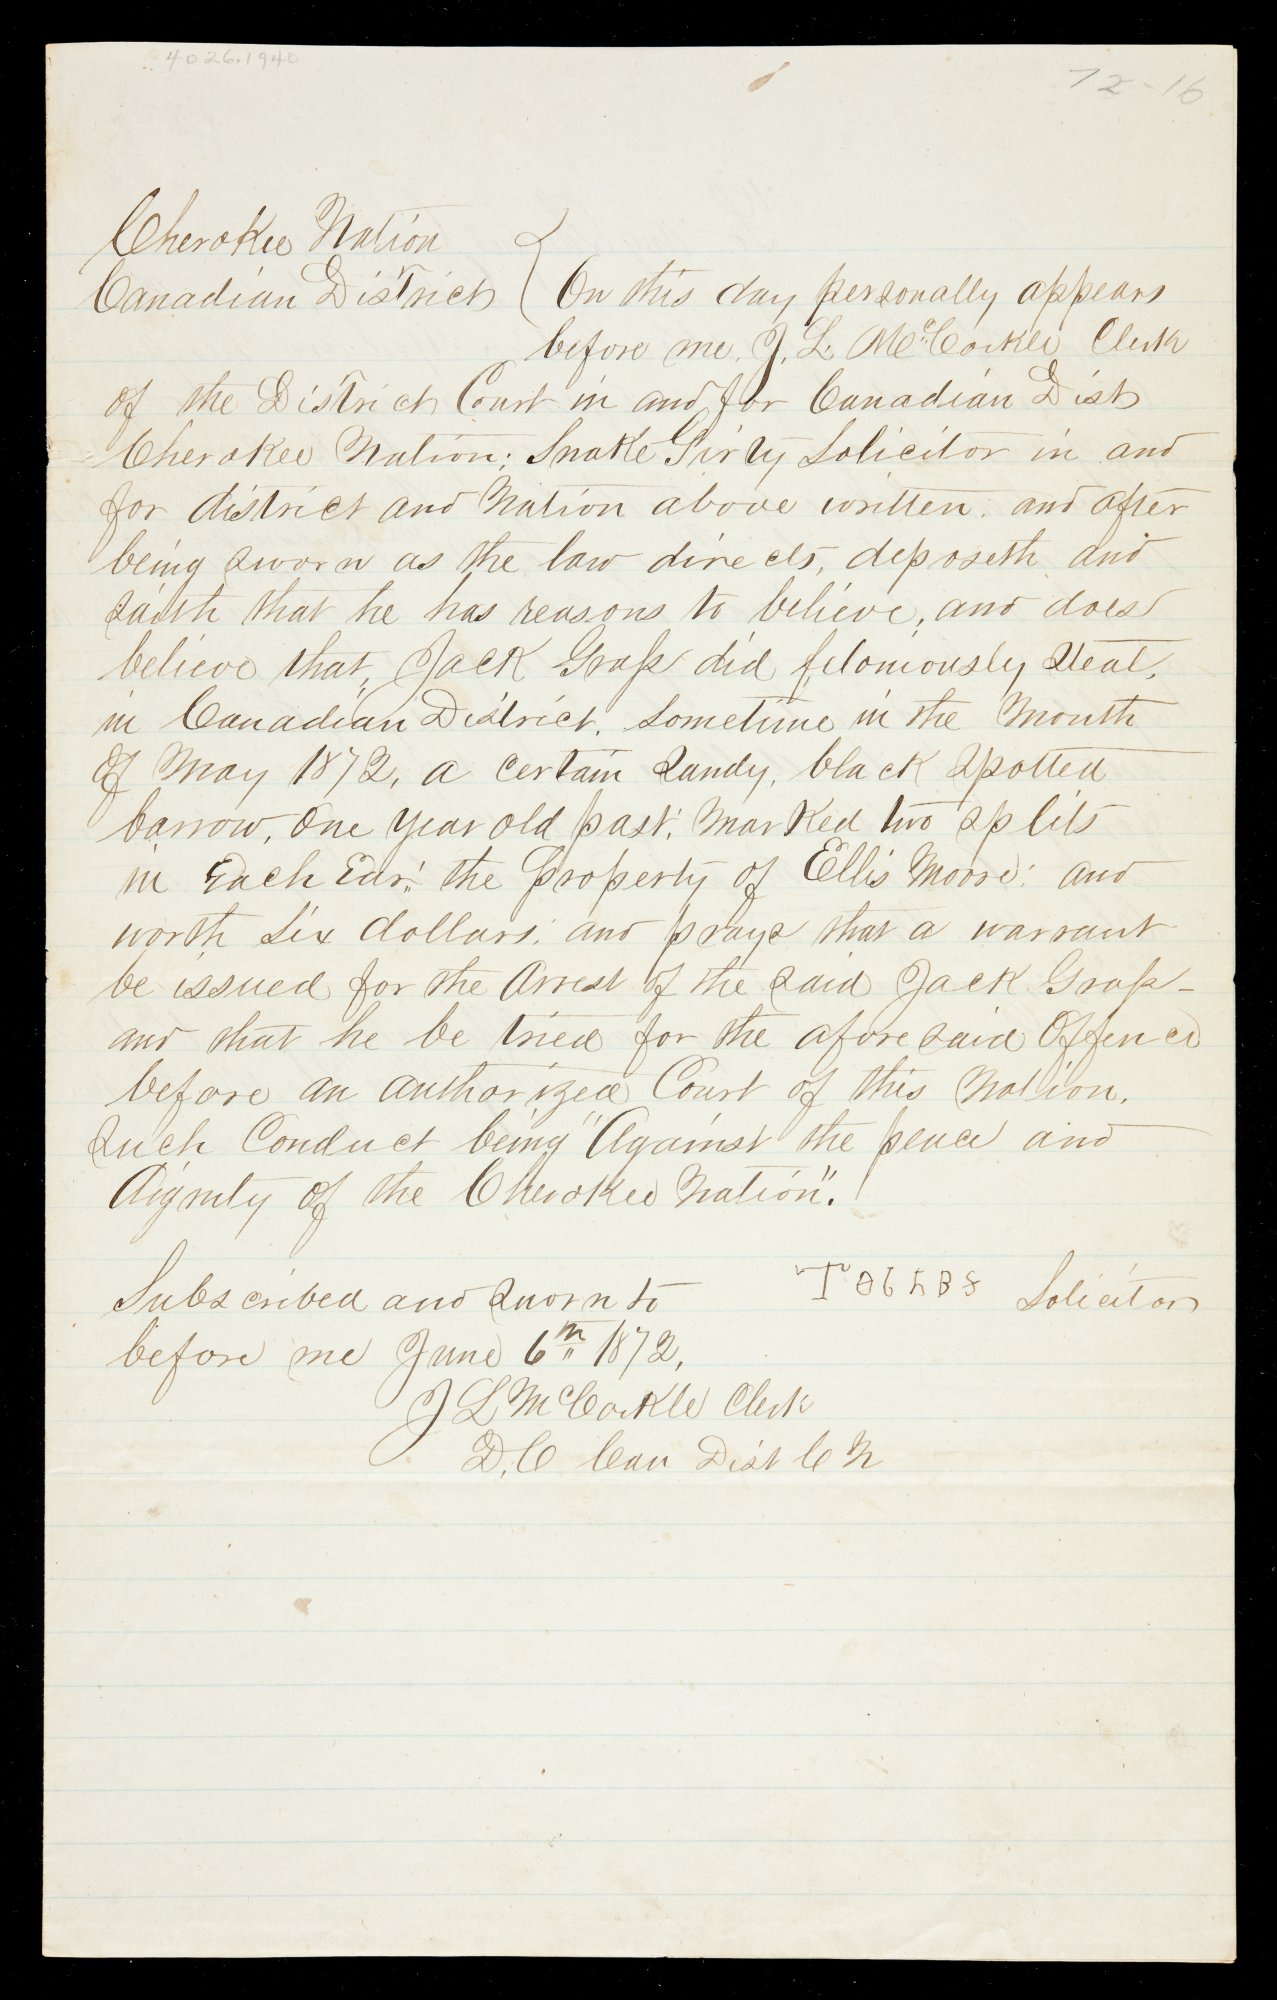 4026.1940
72-16
Cherokee Nation
Canadian District } On this day personally appears
before me, J. L. McCorkle Clerk
of the District Court in and for Canadian Dist
Cherokee Nation; Snake Girty Solicitor in and
for district and Nation above written. and after
being sworn as the law directs, deposeth and
saith that he has reasons to believe, and does
believe that, Jack Grass did feloniously steal,
in Canadian District, sometime in the Month
of May 1872, a certain sandy, black spotted
barrow, one year old past; marked two splits
in Each Ear; the property of Ellis Moore; and
worth six dollars; and prays that a warrant
be issued for the Arrest of the said Jack Grass-
and that he be tried for the aforesaid Offence
before an authorized Court of this Nation.
Such Conduct being "Against the peace and
dignity of the Cherokee Nation".
Solicitor
Subscribed and sworn to
before me June 6th 1872,
J L McCorkle Clerk
D. C Can Dist C N